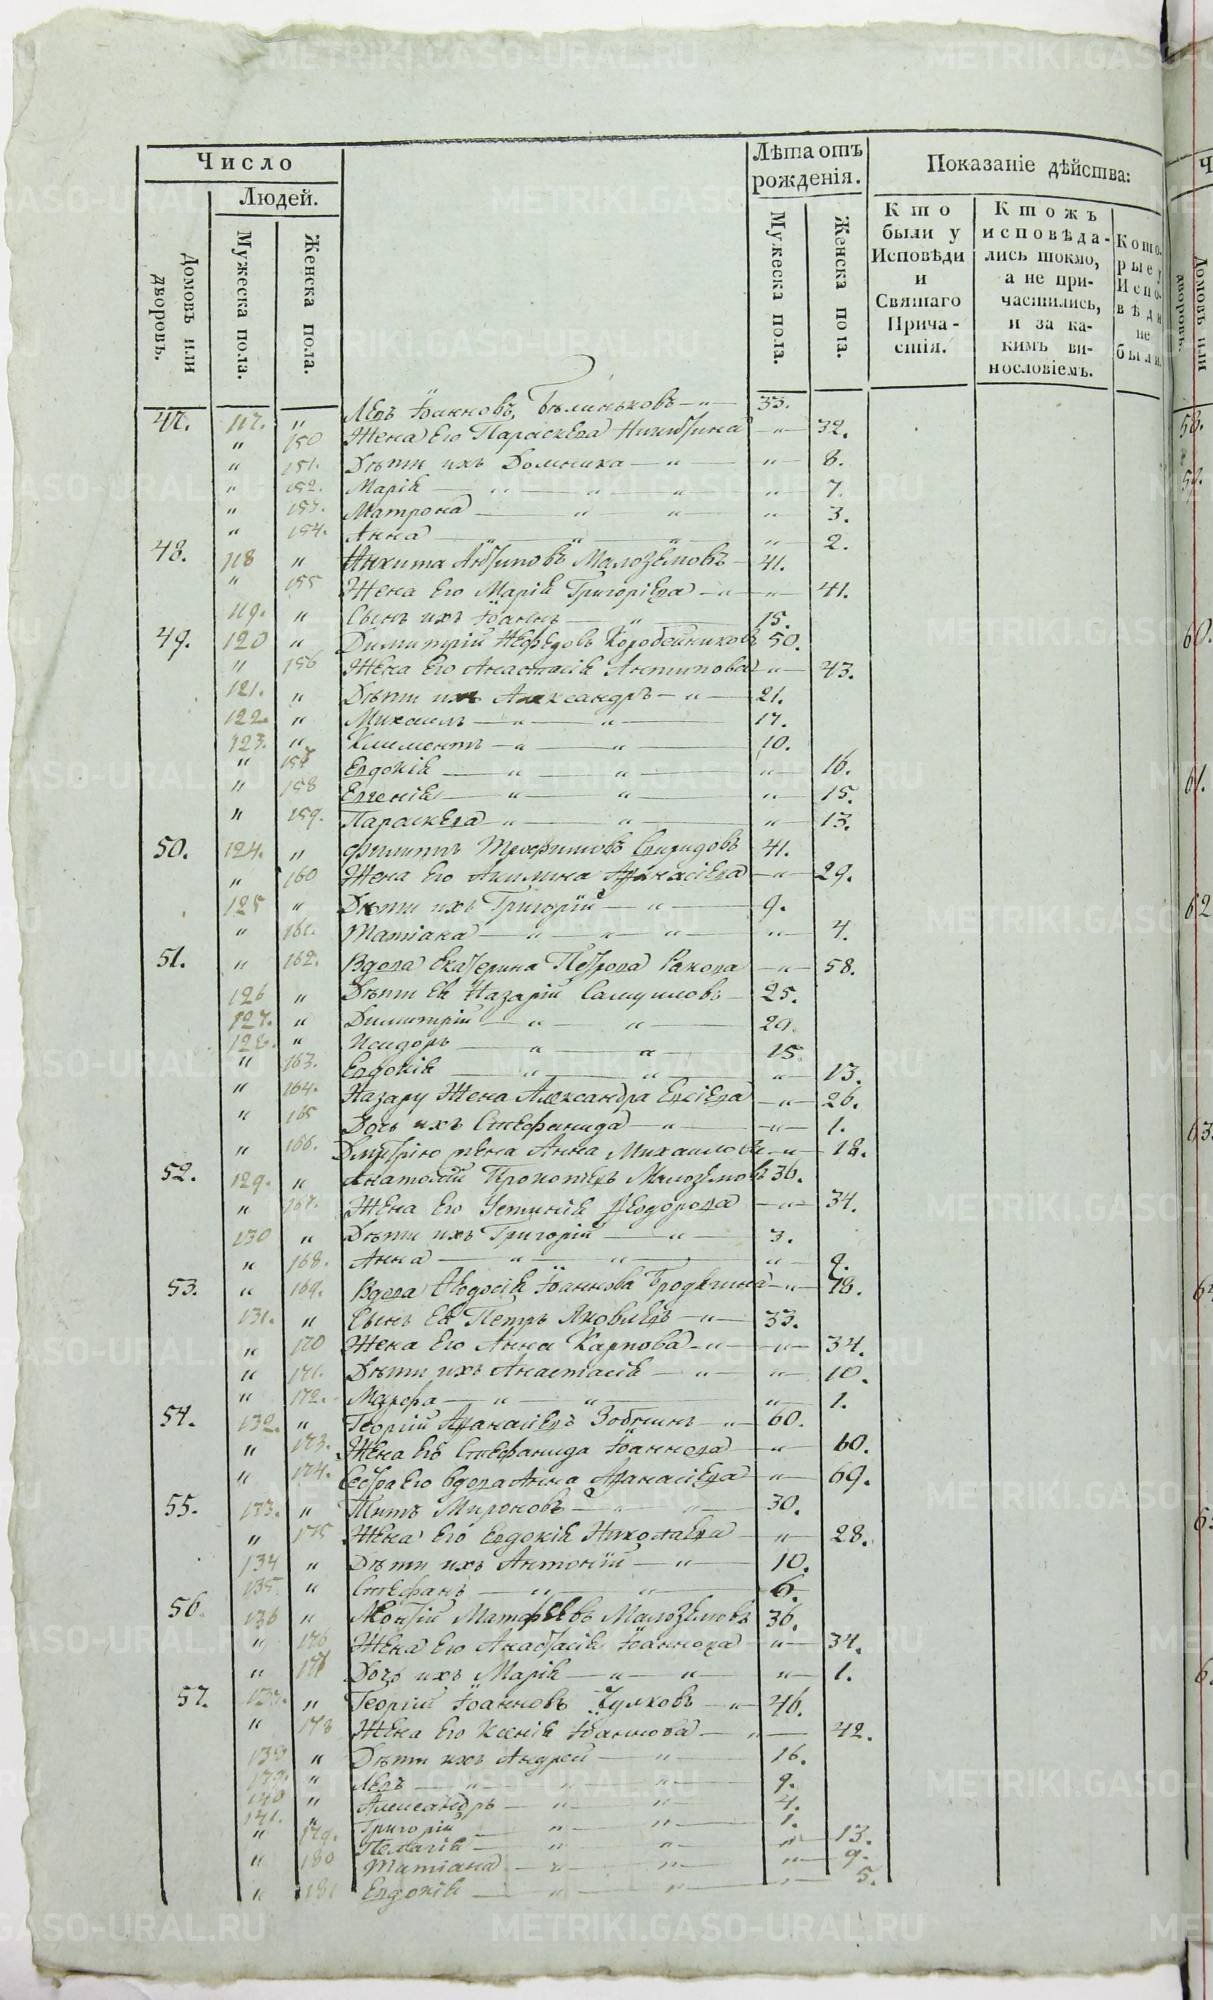 Число
Людей.
Домовъ или дворовъ.
Мужеска пола.
Женска пола.
Лѣта отъ рожденія.
Мужеска пола.
Женска пола.
Показаніе дѣйства:
Кто были у Исповѣди и Святаго Причастія.
Ктожъ исповѣдались токмо, а не причастились, и за какимъ винословіемъ.
Которые у Исповѣди не были.
47. 117. " Левъ Іоанновъ Бѣлиньковъ — " — 33.
" 150 Жена Его Параскева Никитина — " — 32.
" 151. Дѣти ихъ Домника — " — " — 8.
" 152. Марія — " — " — " " 7.
" 153. Матрона — " — " " 3.
" 154. Анна — " — " — " " 2.
48. 118 " Никита Антиповъ Малоземовъ — 41.
" 155 Жена Его Марія Григоріева — " — " — 41.
119. " Сынъ ихъ Іоаннъ — " — 15.
49. 120 " Димитрій Нефедовъ Коробейниковъ 50.
" 156 Жена Его Анастасія Антипова — " — 43.
121. " Дѣти ихъ Александръ — " — 21.
122. " Михаилъ — " — " — 17.
123. " Климентъ — " — " — 10.
" 157 Евдокія — " — " — " — 16.
" 158 Евгенія — " — " — " — 15.
" 159. Параскева — " — " — " — 13.
50. 124. " Филиппъ Трофимовъ Спиридовъ 41.
" 160 Жена Его Акилина Афанасіева — " — 29.
125 " Дѣти ихъ Григорій — " — 9.
" 161. Татіана — " — " — " — " — 4.
51. " 162. Вдова Екатерина Петрова Ракова — " — 58.
126 " Дѣти Ея Назарій Самуиловъ — 25.
127. " Димитрій — " — " — 20.
128. " Исидоръ — " — " — 15.
" 163. Евдокія — " — " — " — 13.
" 164. Назару Жена Александра Евсіева — " — 26.
" 165 Дочь ихъ Стефанида — " — " — 1.
" 166. Дмитрію жена Анна Михаилова — " — 18.
52. 129. " Анатолій Прокопьевъ Малоземовъ 36.
" 167. Жена Его Устинія Феодорова — " — 34.
130 " Дѣти ихъ Григорій — " — 3.
" 168. Анна — " — " — "
53. " 169. Вдова Феодосія Іоаннова Бродягина — " — 78.
131. " Сынъ Ея Петръ Яковлевъ — " — 33.
" 170 Жена Его Анна Карпова — " — " — 34.
" 171. Дѣти ихъ Анастасія — " — " — 10.
" 172. Мавра — " — " — " — 1.
54. 132. " Георгій Афанасіевъ Зобнинъ — " — 60.
" 173. Жена Его Стефанида Іоаннова — " — 60.
" 174. Сестра Его вдова Анна Афанасіева — " — 69.
55. 133. " Титъ Мироновъ — " — " — 30.
" 175 Жена Его Евдокія Николаева — " — 28.
134 " Дѣти ихъ Антоній — " — 10.
135. " Стефанъ — " — " — 6.
56. 136 " Леонтій Матфеевъ Малоземовъ 36.
" 176 Жена Его Анастасія Іоаннова — " — 34.
" 177 Дочь ихъ Марія — " — " — " — 1.
57. 137. " Георгій Іоанновъ Чулковъ — " — 46.
" 178 Жена Его Ксенія Іоаннова — " — 42.
138 " Дѣти ихъ Андрей — " — 16.
139. " Левъ — " — " — " — 9.
140 " Александръ — " — " — 4.
141. " Григорій — " — " — 1.
" 179. Пелагія — " — " — " — 13.
" 180 Татіана — " — " — " — 9.
" 181 Евдокія — " — " — 5.
58.
59.
60.
61.
62
63.